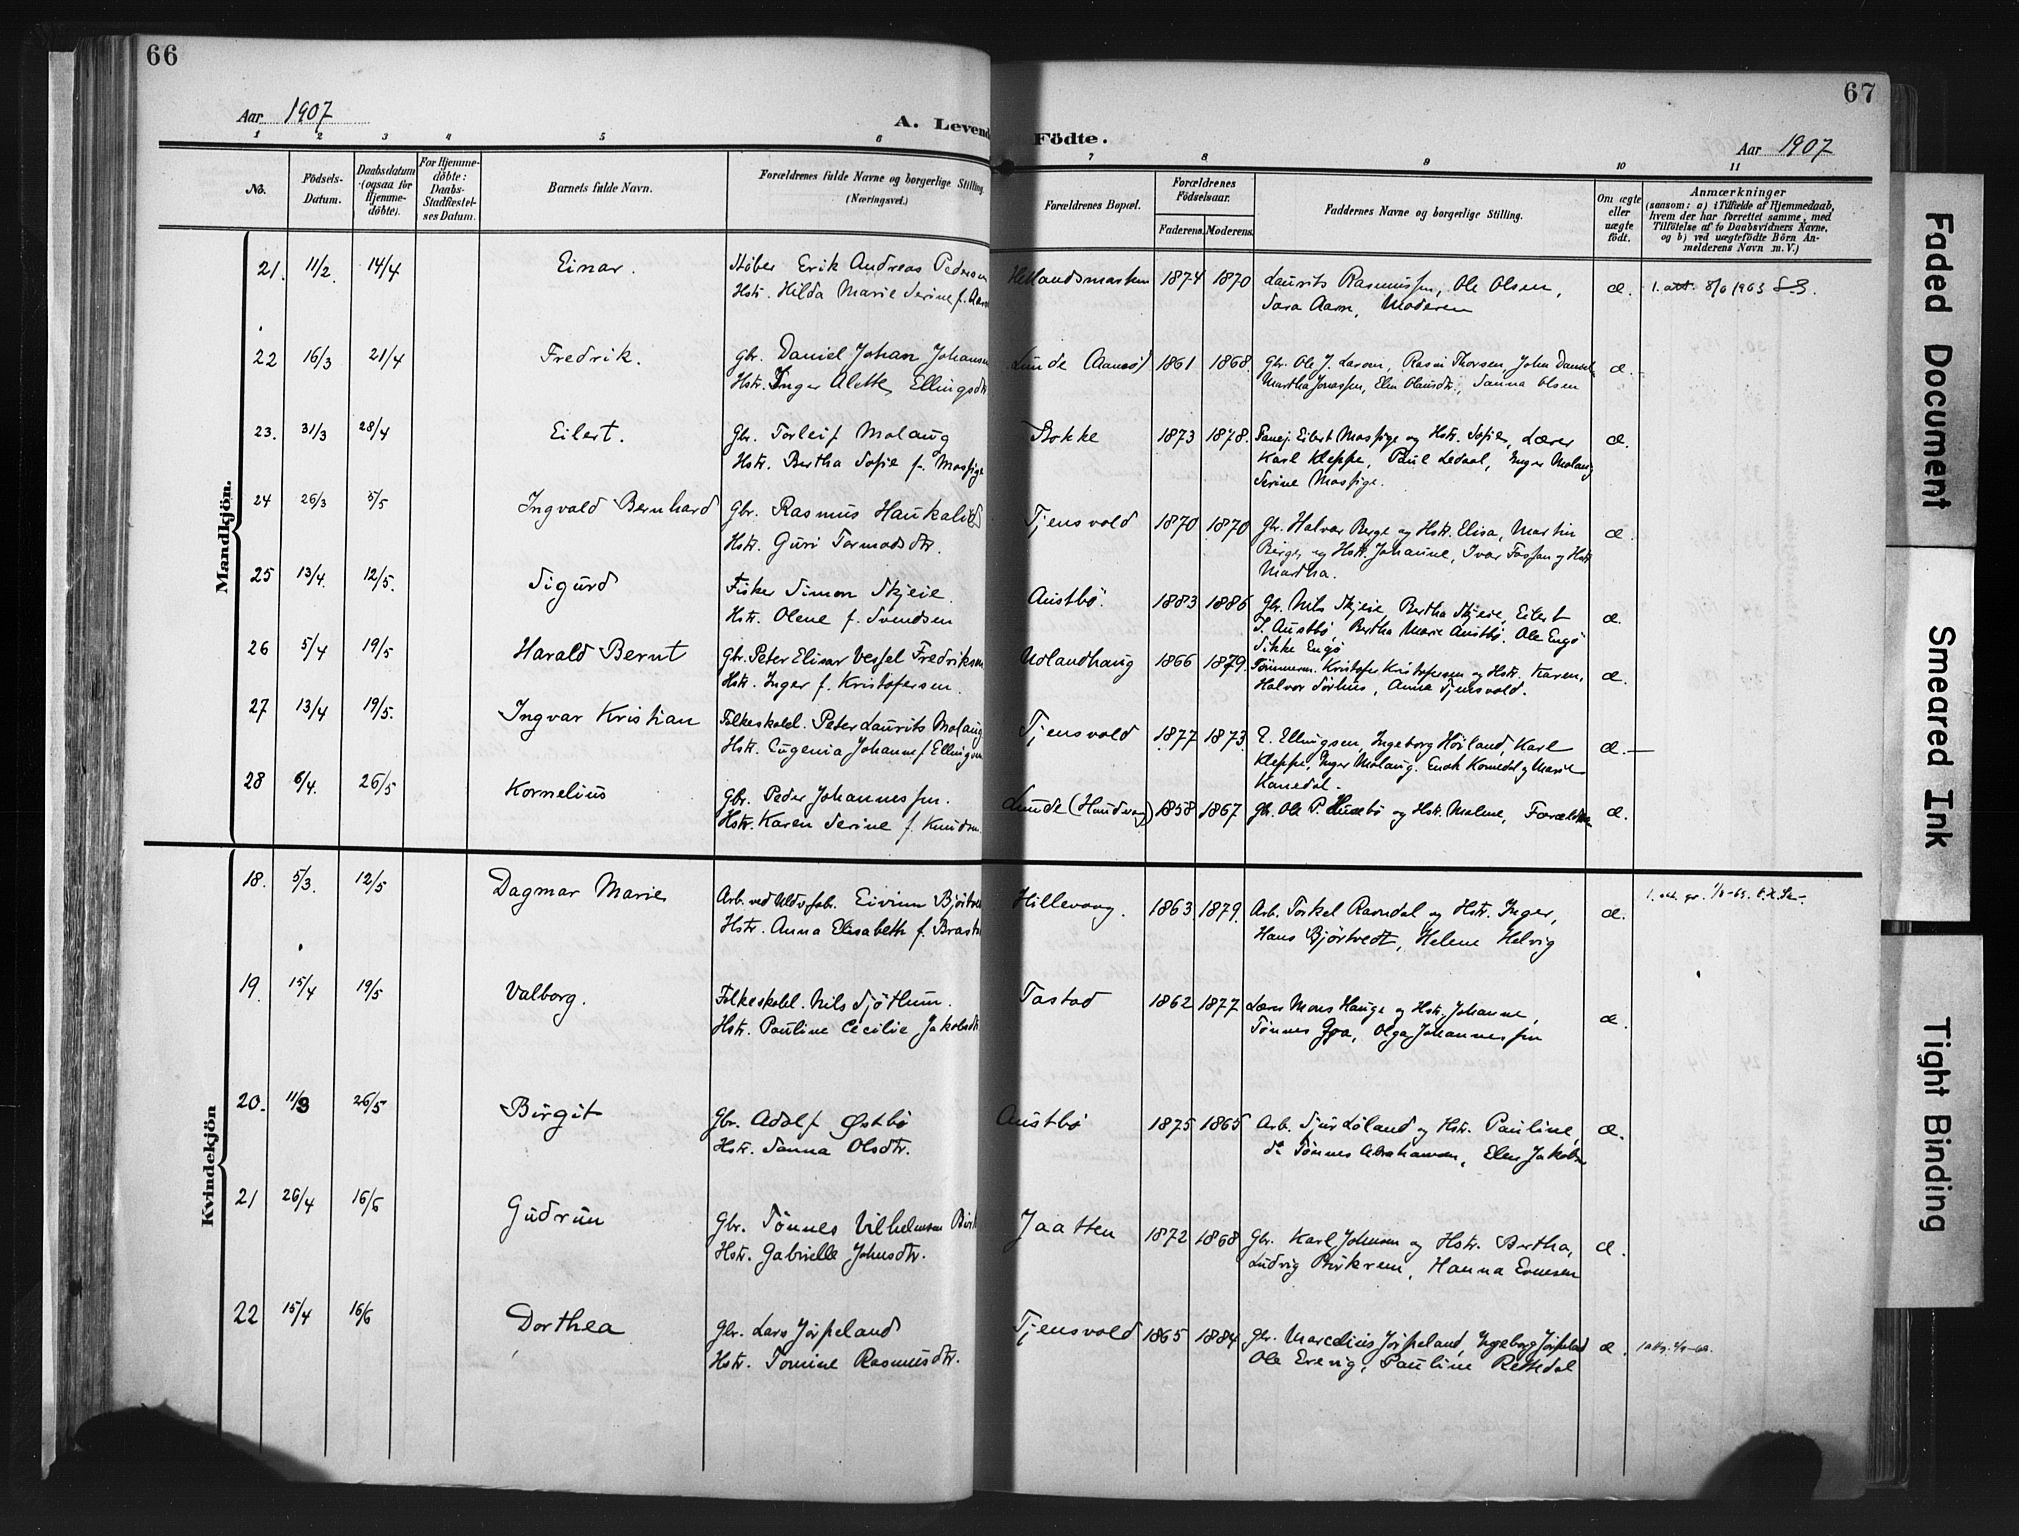 66
67
Aar 1907
A. Levende
Födte.
Aar 1907
1 2 3 4 5 6 7 8 9 10 11
No.
Födsels-
Datum.
Daabsdatum
(ogsaa for
Hjemme-
döbte).
For Hjemme-
döbte:
Daabs-
Stadfæstel-
ses Datum.
Barnets fulde Navn.
Forældrenes fulde Navne og borgerlige Stilling.
(Næringsvei.)
Forældrenes Bopæl.
Forældrenes
Födselsaar.
Faderens. Moderens.
Faddernes Navne og borgerlige Stilling.
Om ægte
eller
uægte
födt.
Anmærkninger
(saasom: a) i Tilfælde af Hjemmedaab,
hvem der har forrettet samme, med
Tilföielse af to Daabsvidners Navne,
og b) ved uægtefödte Börn An-
melderens Navn m. V.)
Mandkjön.
21. 11/2. 14/4 Einar. Støber Erik Andreas Pedersen Hetlandsmarken 1874 1870 Laurits Rasmussen, Ole Olsen, æ. 1. att. 8/6 1963
Hstr. Hilda Marie Serine f. Aarn Sara Aarn, Moderen
22 16/3 21/4 Fredrik. Gbr. Daniel Johan Johansen Lunde 1861 1868. Gbr. Ole J. Larsen, Rasm Thorsen, John Daniel æ.
Hstr. Inger Alette Ellingsdtr Martha Jonassen, Elen Olausdtr, Sanna Olsen
23. 31/3 28/4 Eilert. Gbr. Torleif Molaug Bokke 1873 1878. Eilert Mossige og Hstr. Sofie, Lærer æ.
Hstr. Bertha Sofie f. Mossige Karl Kleppe, Paul Ledaal, Inger Molaug
Serine Mossige.
24 26/3 5/5 Ingvald Bernhard Gbr. Rasmus Haukalid Tjensvold 1870 1870 Gbr. Halvor Berge og Hstr. Elisa, Martin æ.
Hstr. Guri Tormodsdtr. Berge og Hstr. Johanne, Ivar Fossan og Hstr
Martha.
25 13/4. 12/5. Sigurd Fisker Simon Skjeie. Austbö. 1883 1886 Gbr. Nils Skjeie, Bertha Skjeie, Eilert æ.
Hstr. Olene f. Svendsen T. Austbö, Bertha Marie Austbö. Ole Engö
Sikke Engö
26 5/4 19/5 Harald Bernt Gbr. Peter Elisar Vessel Fredriksen Ulandhaug 1866 1879. Tömmerm. Kristofer Kristofersen og Hstr. Karen, æ.
Hstr. Inger f. Kristofersen. Halvor Sörhus, Anna Tjensvold.
27 13/4 19/5. Ingvar Kristian Folkeskolel. Peter Laurits Molaug Tjensvold 1877 1873 E. Ellingsen, Ingeborg Höiland, Karl æ.
Hstr. Eugenia Johanne f Ellingsen Kleppe, Inger Molaug. Enok Konedal og Marie
Konedal.
28 6/4. 26/5 Kornelius Gbr. Peder Johannessen. Lunde 1858 1867 Gbr. Ole P. Husebö og Hstr. Malene, Forældrene æ.
Hstr. Karen Serine f. Knudsn.
Kvindekjön
18. 5/3. 12/5 Dagmar Marie Arb. ved Uldvfab. Eivinn Björtve Hillevaag. 1863 1879. Arb. Torkel Ravndal og Hstr. Inger, æ.
Hstr. Anna Elisabeth f. Brast Hans Björtvedt, Helene Helvig
19. 15/4 19/5 Valborg. Folkeskolel. Nils Sjöthun. Tastad 1862 1877 Lærer Mons Hauge og Hstr. Johanne, æ.
Hstr. Pauline Cecilie Jakobsdtr Tönnes Goa, Olga Johannessen
20. 11/3 26/5 Birgit Gbr. Adolf Østbö Austbö 1875 1865 Arb. Sjur Löland og Hstr. Pauline, æ.
Hstr. Sanna Olsdtr. do Tönnes Abrahamsen, Elen Jakobsen
21 26/4 16/6 Gudrun Gbr. Tönnes Vilhelmsen Birk Jaatten 1872 1868 Gbr. Karl Johnsen og Hstr. Bertha, æ.
Hstr. Gabrielle Johnsdtr. Ludvig Birkrem, Hanna Evensen
22 15/4 16/6 Dorthea Gbr. Lars Jörpeland Tjensvold 1865 1884 Gbr. Marcelius Jörpeland, Ingeborg Jörpeland æ.
Hstr. Tomine Rasmusdtr. Ole Erevig, Pauline Rettedal
Faded Document
Smeared Ink
Tight Binding